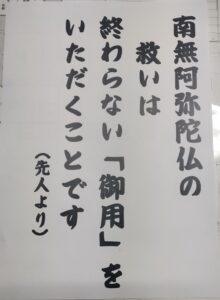 南無阿弥陀仏の
救いは
終わらない「御用」を
いただくことです
（先人より）